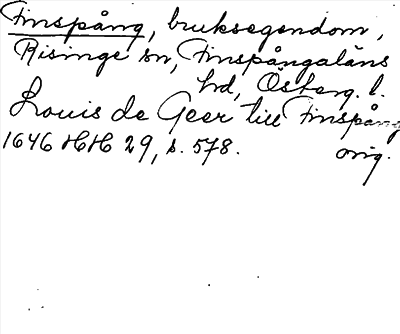 Finspång, bruksegendom,
Risinge sn, Finspångaläns
hd, Österg. l.
Louis de Geer till Finspång
1646 HH 29, s. 578.
orig.